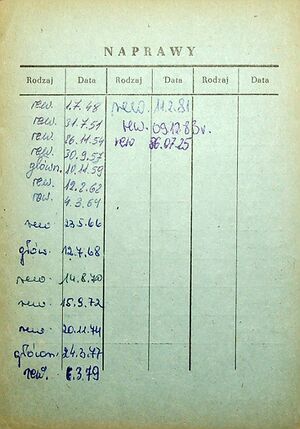 NAPRAWY
Rodzaj Data Rodzaj Data Rodzaj Data
rew. 1.7.48
rew. 31.7.51
rew. 26.11.54
rew. 30.9.57
główn. 10.11.59
rew. 12.2.62
rew. 4.3.64
rew 23.5.66
głów. 12.7.68
rew 14.8.70
rew. 15.9.72
rew. 20.11.74
główn. 24.3.77
rew. 6.3.79
rew. 11.2.81
rew. 091283r.
rew 86.07.25